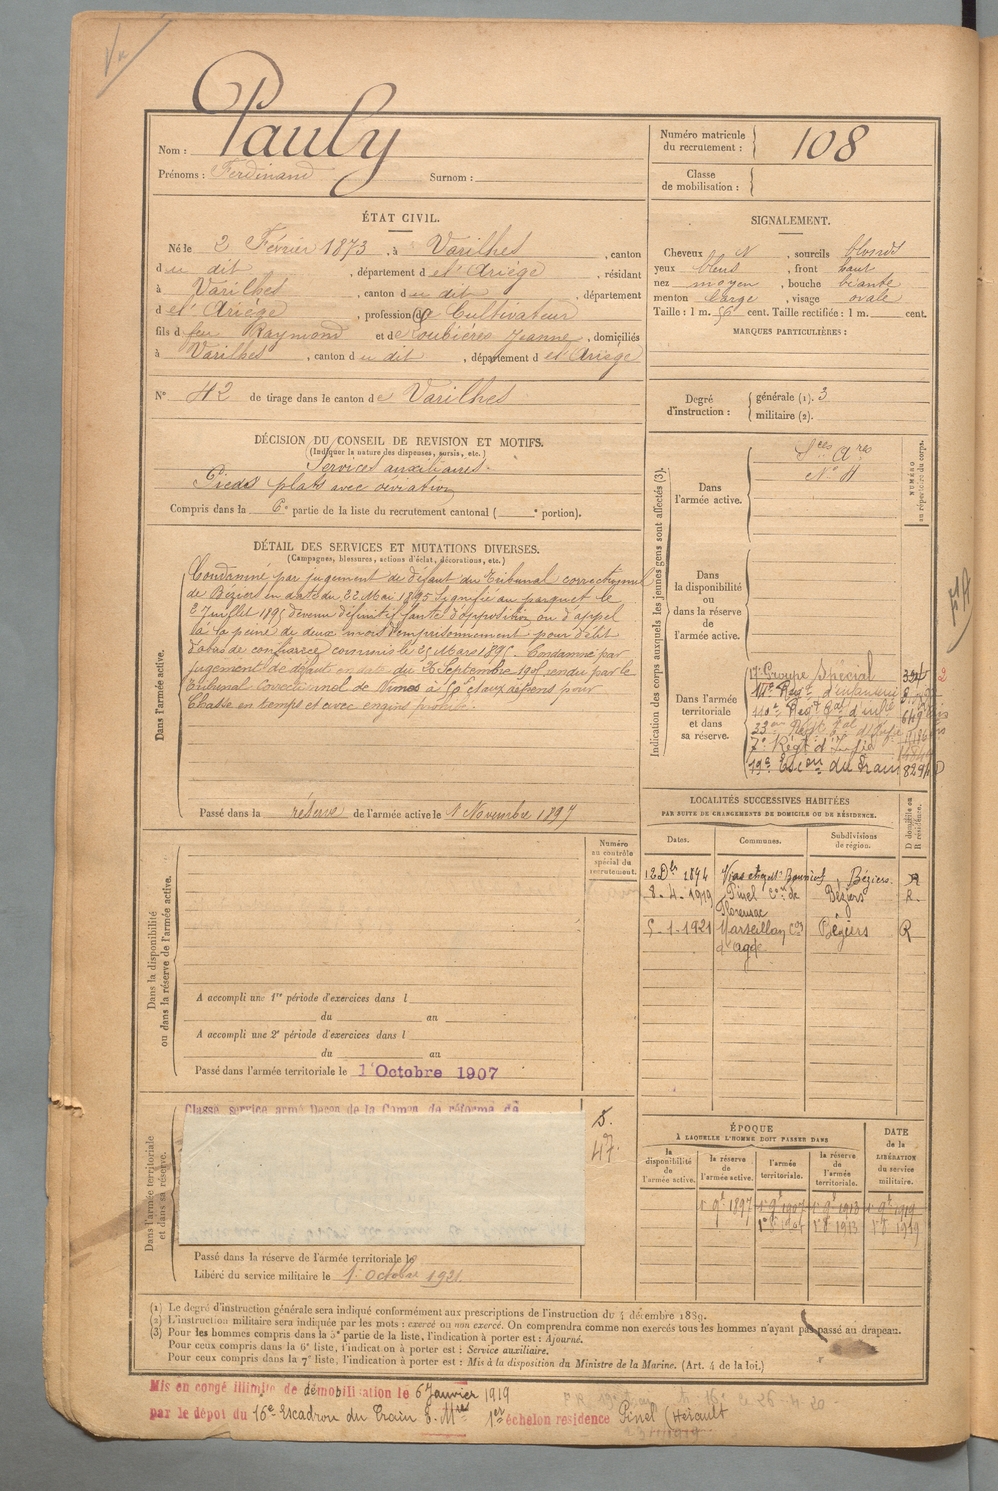 Pauly
Nom :
Prénoms : Ferdinand Surnom :
Numéro matricule
du recrutement : 108
Classe
de mobilisation :
ÉTAT CIVIL.
Né le 2 Février 1873, à Varilhes, canton
du dit, département de l'Ariège, résidant
à Varilhes, canton du dit, département
de l'Ariège, profession de Cultivateur
fils de feu Raymond et de Roubières Jeanne, domiciliés
à Varilhes, canton du dit, département de l'Ariège
N° 42 de tirage dans le canton de Varilhes
SIGNALEMENT.
Cheveux N, sourcils blonds
yeux bleus, front haut
nez moyen, bouche béante
menton large, visage ovale
Taille : 1 m. 56 cent. Taille rectifiée : 1 m. cent.
MARQUES PARTICULIÈRES :
Degré
d'instruction :
générale (1). 3
militaire (2).
DÉCISION DU CONSEIL DE REVISION ET MOTIFS.
(Indiquer la nature des dispenses, sursis, etc.)
Services auxiliaires.
Pieds plats avec déviation
Compris dans la 6e partie de la liste du recrutement cantonal ( e portion).
DÉTAIL DES SERVICES ET MUTATIONS DIVERSES.
(Campagnes, blessures, actions d'éclat, décorations, etc.)
Dans l'armée active.
Condamné par jugement de défaut du Tribunal correctionnel
de Béziers en date du 22 Mai 1895 signifié au parquet le
2 Juillet 1895 devenu définitif faute d'opposition ou d'appel
à la peine de deux mois d'emprisonnement pour délit
d'abus de confiance commis le 25 Mars 1895. Condamné par
jugement de défaut en date du 26 Septembre 1905 rendu par le
Tribunal correctionnel de Nimes à 50f et aux dépens pour
Chasse en temps et avec engins prohibé.
Passé dans la réserve de l'armée active le 1 Novembre 1897
Indication des corps auxquels les jeunes gens sont affectés (3).
NUMÉRO
au répertoire du corps.
Dans
l'armée active.
Sces Ares
N° 4
Dans
la disponibilité
ou
dans la réserve
de
l'armée active.
Dans l'armée
territoriale
et dans
sa réserve.
17e Groupe Spécial
Regt d'infanterie
7e Régt d'Infie
19e Escon du Train
LOCALITÉS SUCCESSIVES HABITÉES
PAR SUITE DE CHANGEMENTS DE DOMICILE OU DE RÉSIDENCE.
Dates. Communes. Subdivisions
de région.
D domicile ou
R résidence.
12 Dbre 1894 Béziers. R
8-4-1919 Pinel Cne de Béziers R.
Florensac
5-1-1921 Marseillan Con Béziers R
d'Agde
Dans la disponibilité
ou dans la réserve de l'armée active.
Numéro
au contrôle
spécial du
recrutement.
A accompli une 1re période d'exercices dans l
du au
A accompli une 2e période d'exercices dans l
du au
Passé dans l'armée territoriale le 1 Octobre 1907
Dans l'armée territoriale
et dans sa réserve.
Classé service armé Décon de la Comon de réforme de
5.
47.
Passé dans la réserve de l'armée territoriale le
Libéré du service militaire le 1 octobre 1921.
ÉPOQUE
À LAQUELLE L'HOMME DOIT PASSER DANS
DATE
de la
LIBÉRATION
du service
militaire.
la
disponibilité
de
l'armée active.
la réserve
de
l'armée active.
l'armée
territoriale.
la réserve
de
l'armée
territoriale.
1 9bre 1897 1 9bre 1907 1 9bre 1913 1 9bre 1919
(1) Le degré d'instruction générale sera indiqué conformément aux prescriptions de l'instruction du 4 décembre 1889.
(2) L'instruction militaire sera indiquée par les mots : exercé ou non exercé. On comprendra comme non exercés tous les hommes n'ayant pas passé au drapeau.
(3) Pour les hommes compris dans la 5e partie de la liste, l'indication à porter est : Ajourné.
Pour ceux compris dans la 6e liste, l'indication à porter est : Service auxiliaire.
Pour ceux compris dans la 7e liste, l'indication à porter est : Mis à la disposition du Ministre de la Marine. (Art. 4 de la loi.)
Mis en congé illimité de démobilisation le 6 Janvier 1919
par le dépot du 16e Escadron du Train 1er échelon residence Pinel (Hérault